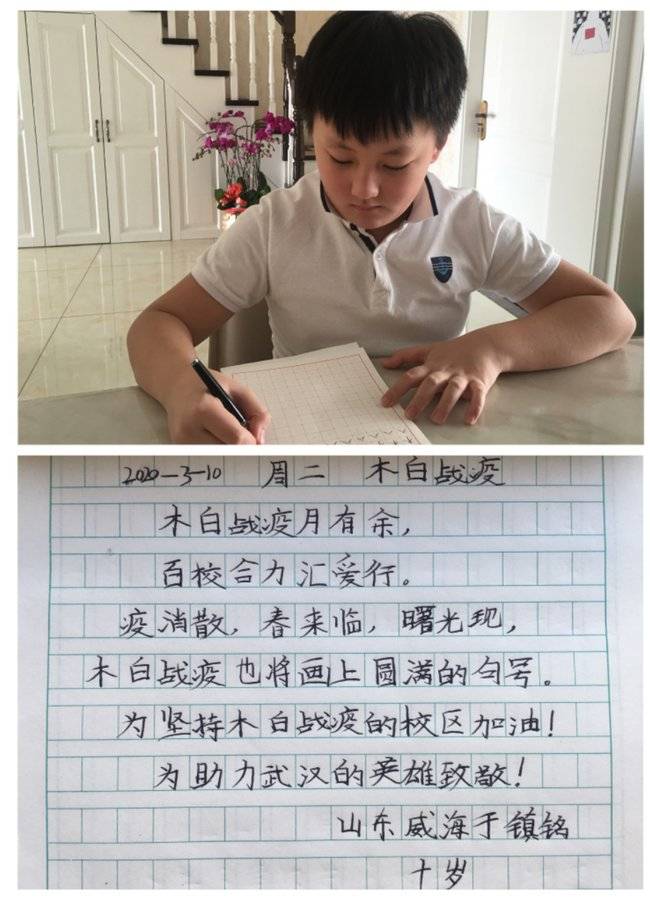 2020-3-10 周二 木白战疫
木白战疫月有余，
百校合力汇爱行。
疫消散，春来临，曙光现，
木白战疫也将画上圆满的句号。
为坚持木白战疫的校区加油！
为助力武汉的英雄致敬！
山东威海于镇铭
十岁